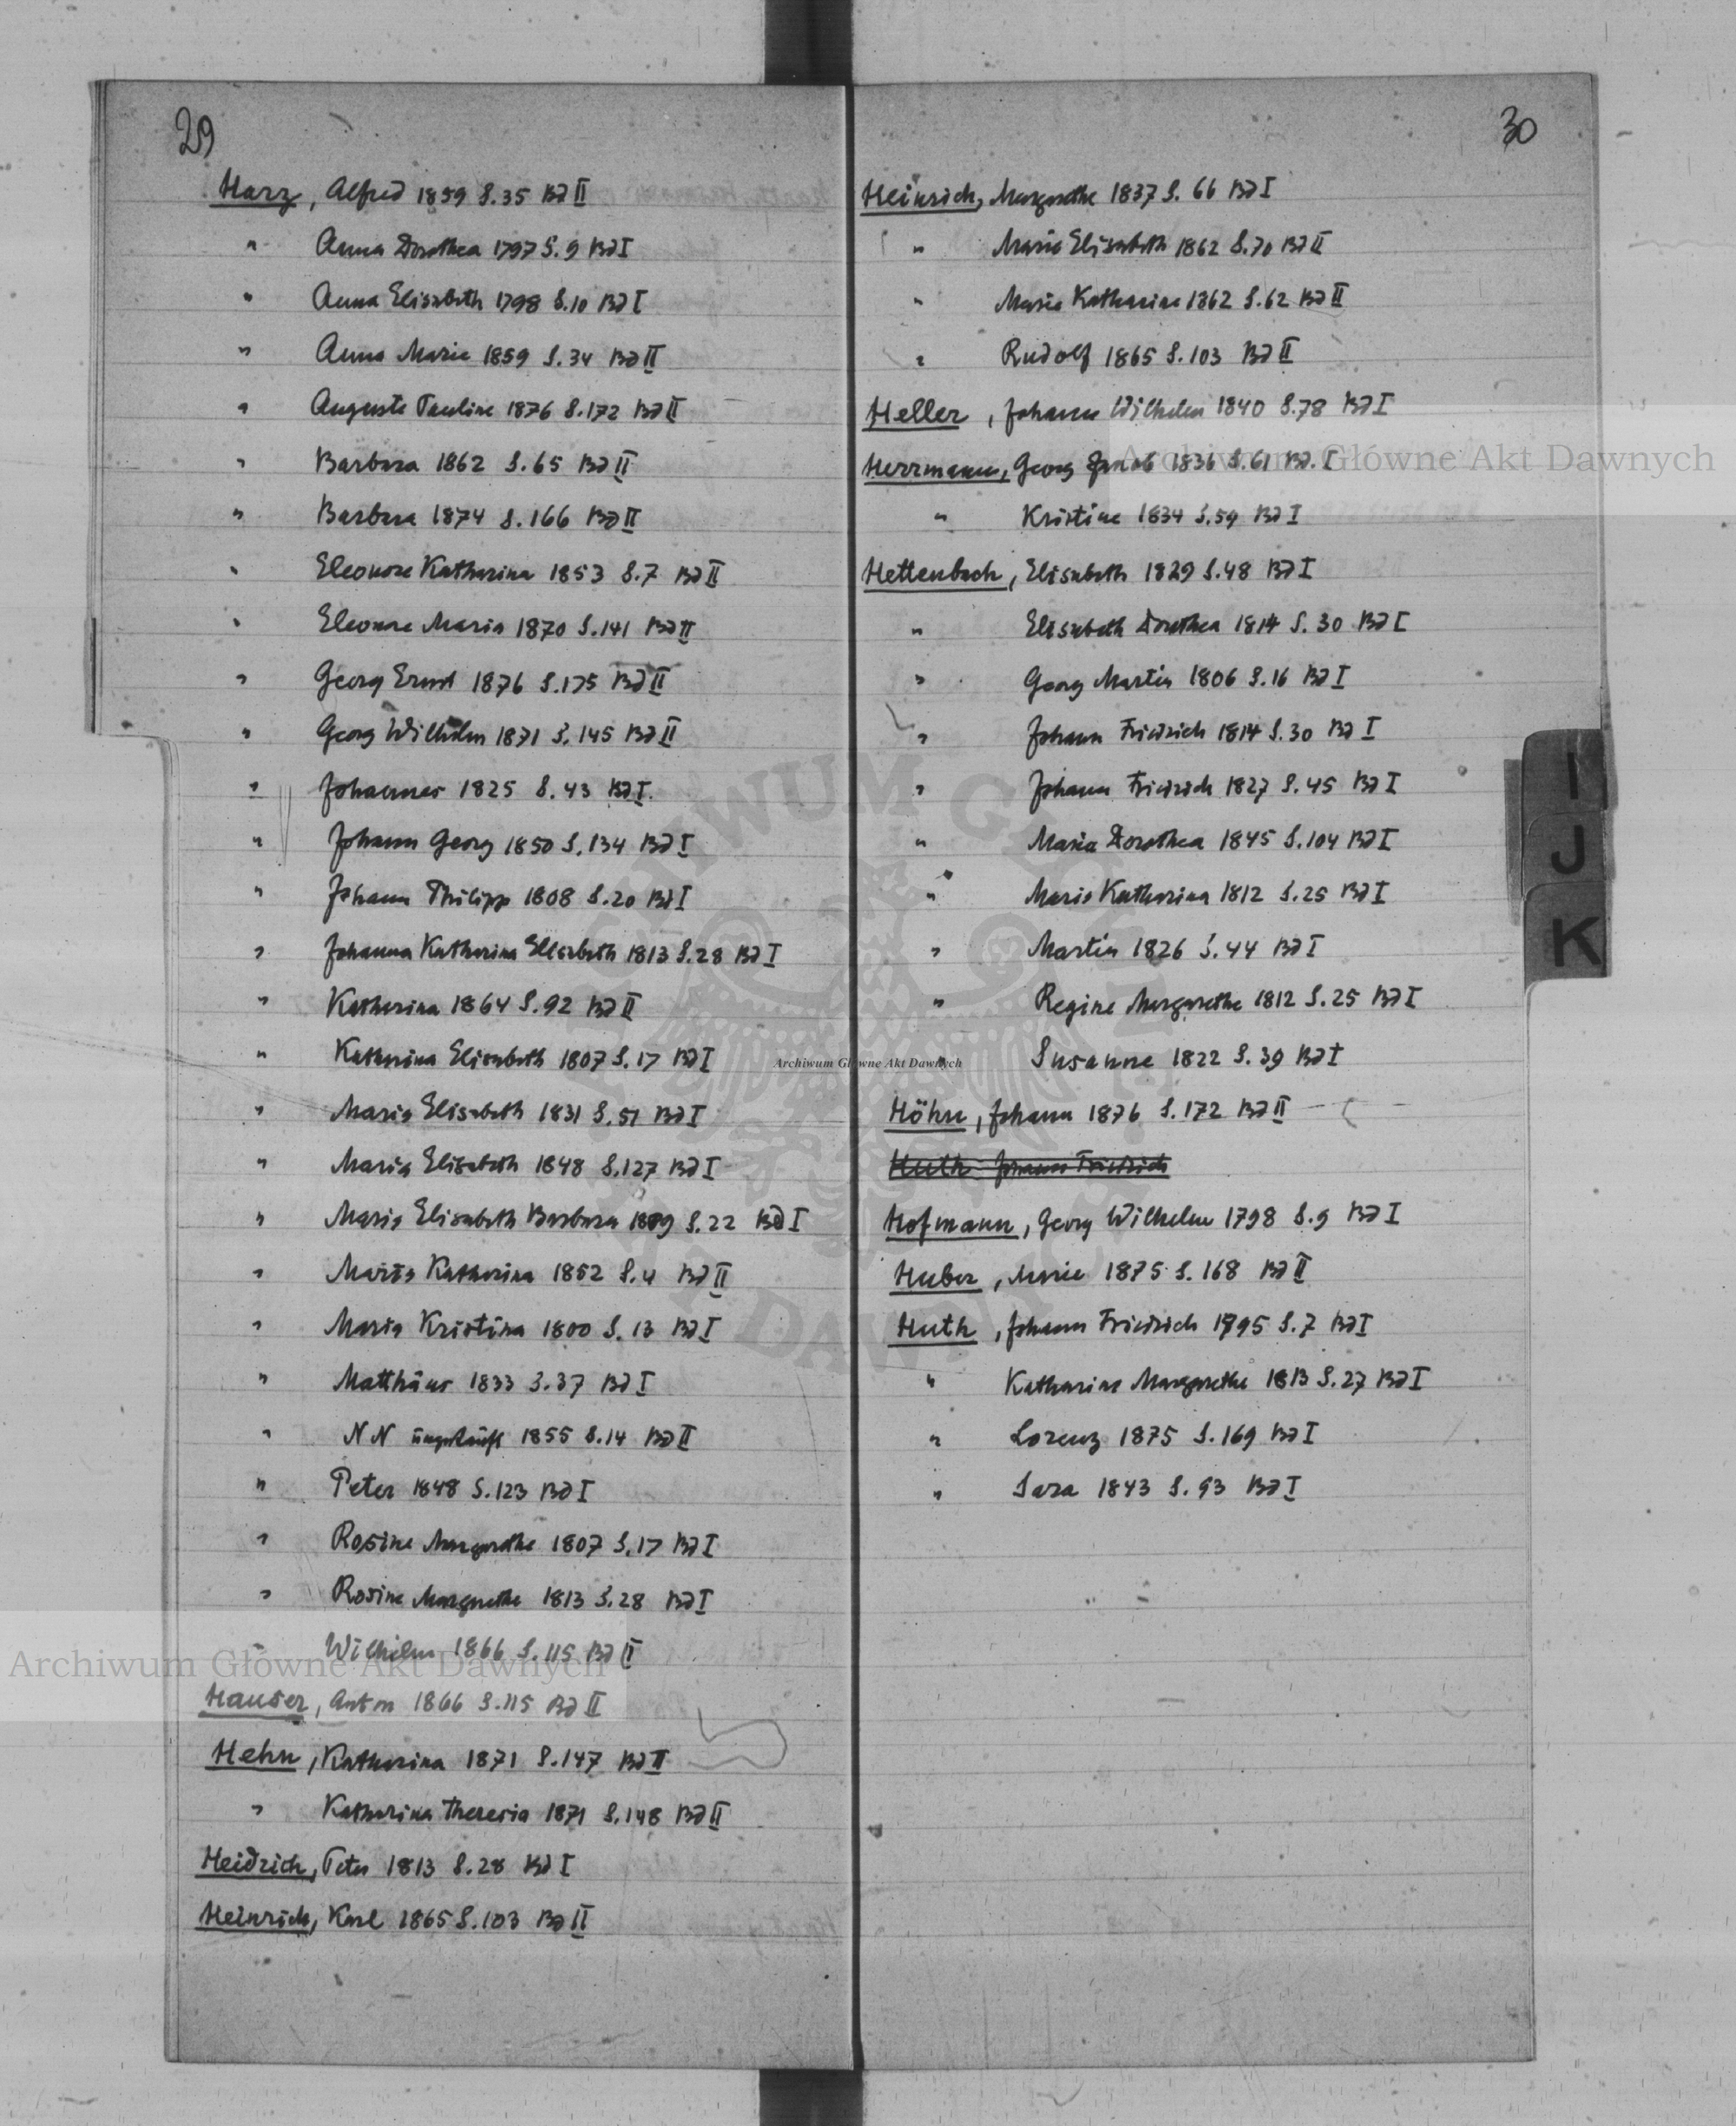 29
Harz, Alfred 1859 S.35 Bd II
" Anna Dorothea 1797 S.9 Bd I
" Anna Elisabeth 1798 S.10 Bd I
" Anna Marie 1859 S.34 Bd II
" Auguste Pauline 1876 S.172 Bd II
" Barbara 1862 S.65 Bd II
" Barbara 1874 S.166 Bd II
" Eleonore Katharina 1853 S.7 Bd II
" Eleonore Maria 1870 S.141 Bd II
" Georg Ernst 1876 S.175 Bd II
" Georg Wilhelm 1871 S.145 Bd II
" Johannes 1825 S.43 Bd I
" Johann Georg 1850 S.134 Bd I
" Johann Philipp 1808 S.20 Bd I
" Johanna Katharina Elisabeth 1813 S.28 Bd I
" Katharina 1864 S.92 Bd II
" Katharina Elisabeth 1807 S.17 Bd I
" Maria Elisabeth 1831 S.51 Bd I
" Maria Elisabeth 1848 S.127 Bd I
" Maria Elisabeth Barbara 1809 S.22 Bd I
" Maria Katharina 1852 S.4 Bd II
" Maria Kristina 1800 S.13 Bd I
" Matthäus 1833 S.37 Bd I
" NN ungetauft 1855 S.14 Bd II
" Peter 1848 S.123 Bd I
" Rosine Margarethe 1807 S.17 Bd I
" Rosine Margarethe 1813 S.28 Bd I
" Wilhelm 1866 S.115 Bd II
Hauser, Anton 1866 S.115 Bd II
Hehn, Katharina 1871 S.147 Bd II
" Katharina Theresia 1871 S.148 Bd II
Heidrich, Peter 1813 S.28 Bd I
Heinrich, Karl 1865 S.103 Bd II
30
Heinrich, Margarethe 1837 S.66 Bd I
" Marie Elisabeth 1862 S.70 Bd II
" Marie Katharina 1862 S.62 Bd II
" Rudolf 1865 S.103 Bd II
Heller, Johann Wilhelm 1840 S.78 Bd I
Herrmann, Georg Jakob 1836 S.61 Bd. I
" Kristine 1834 S.59 Bd I
Hettenbach, Elisabeth 1829 S.48 Bd I
" Elisabeth Dorothea 1814 S.30 Bd I
" Georg Martin 1806 S.16 Bd I
" Johann Friedrich 1814 S.30 Bd I
" Johann Friedrich 1827 S.45 Bd I
" Maria Dorothea 1845 S.104 Bd I
" Maria Katharina 1812 S.25 Bd I
" Martin 1826 S.44 Bd I
" Regine Margarethe 1812 S.25 Bd I
" Susanne 1822 S.39 Bd I
Höhn, Johann 1876 S.172 Bd II
Huth Johann Friedrich
Hofmann, Georg Wilhelm 1798 S.9 Bd I
Huber, Marie 1875 S.168 Bd II
Huth, Johann Friedrich 1795 S.7 Bd I
" Katharina Margarethe 1813 S.27 Bd I
" Lorenz 1875 S.169 Bd I
" Sara 1843 S.93 Bd I
I
J
K
Archiwum Główne Akt Dawnych
Archiwum Główne Akt Dawnych
Archiwum Główne Akt Dawnych